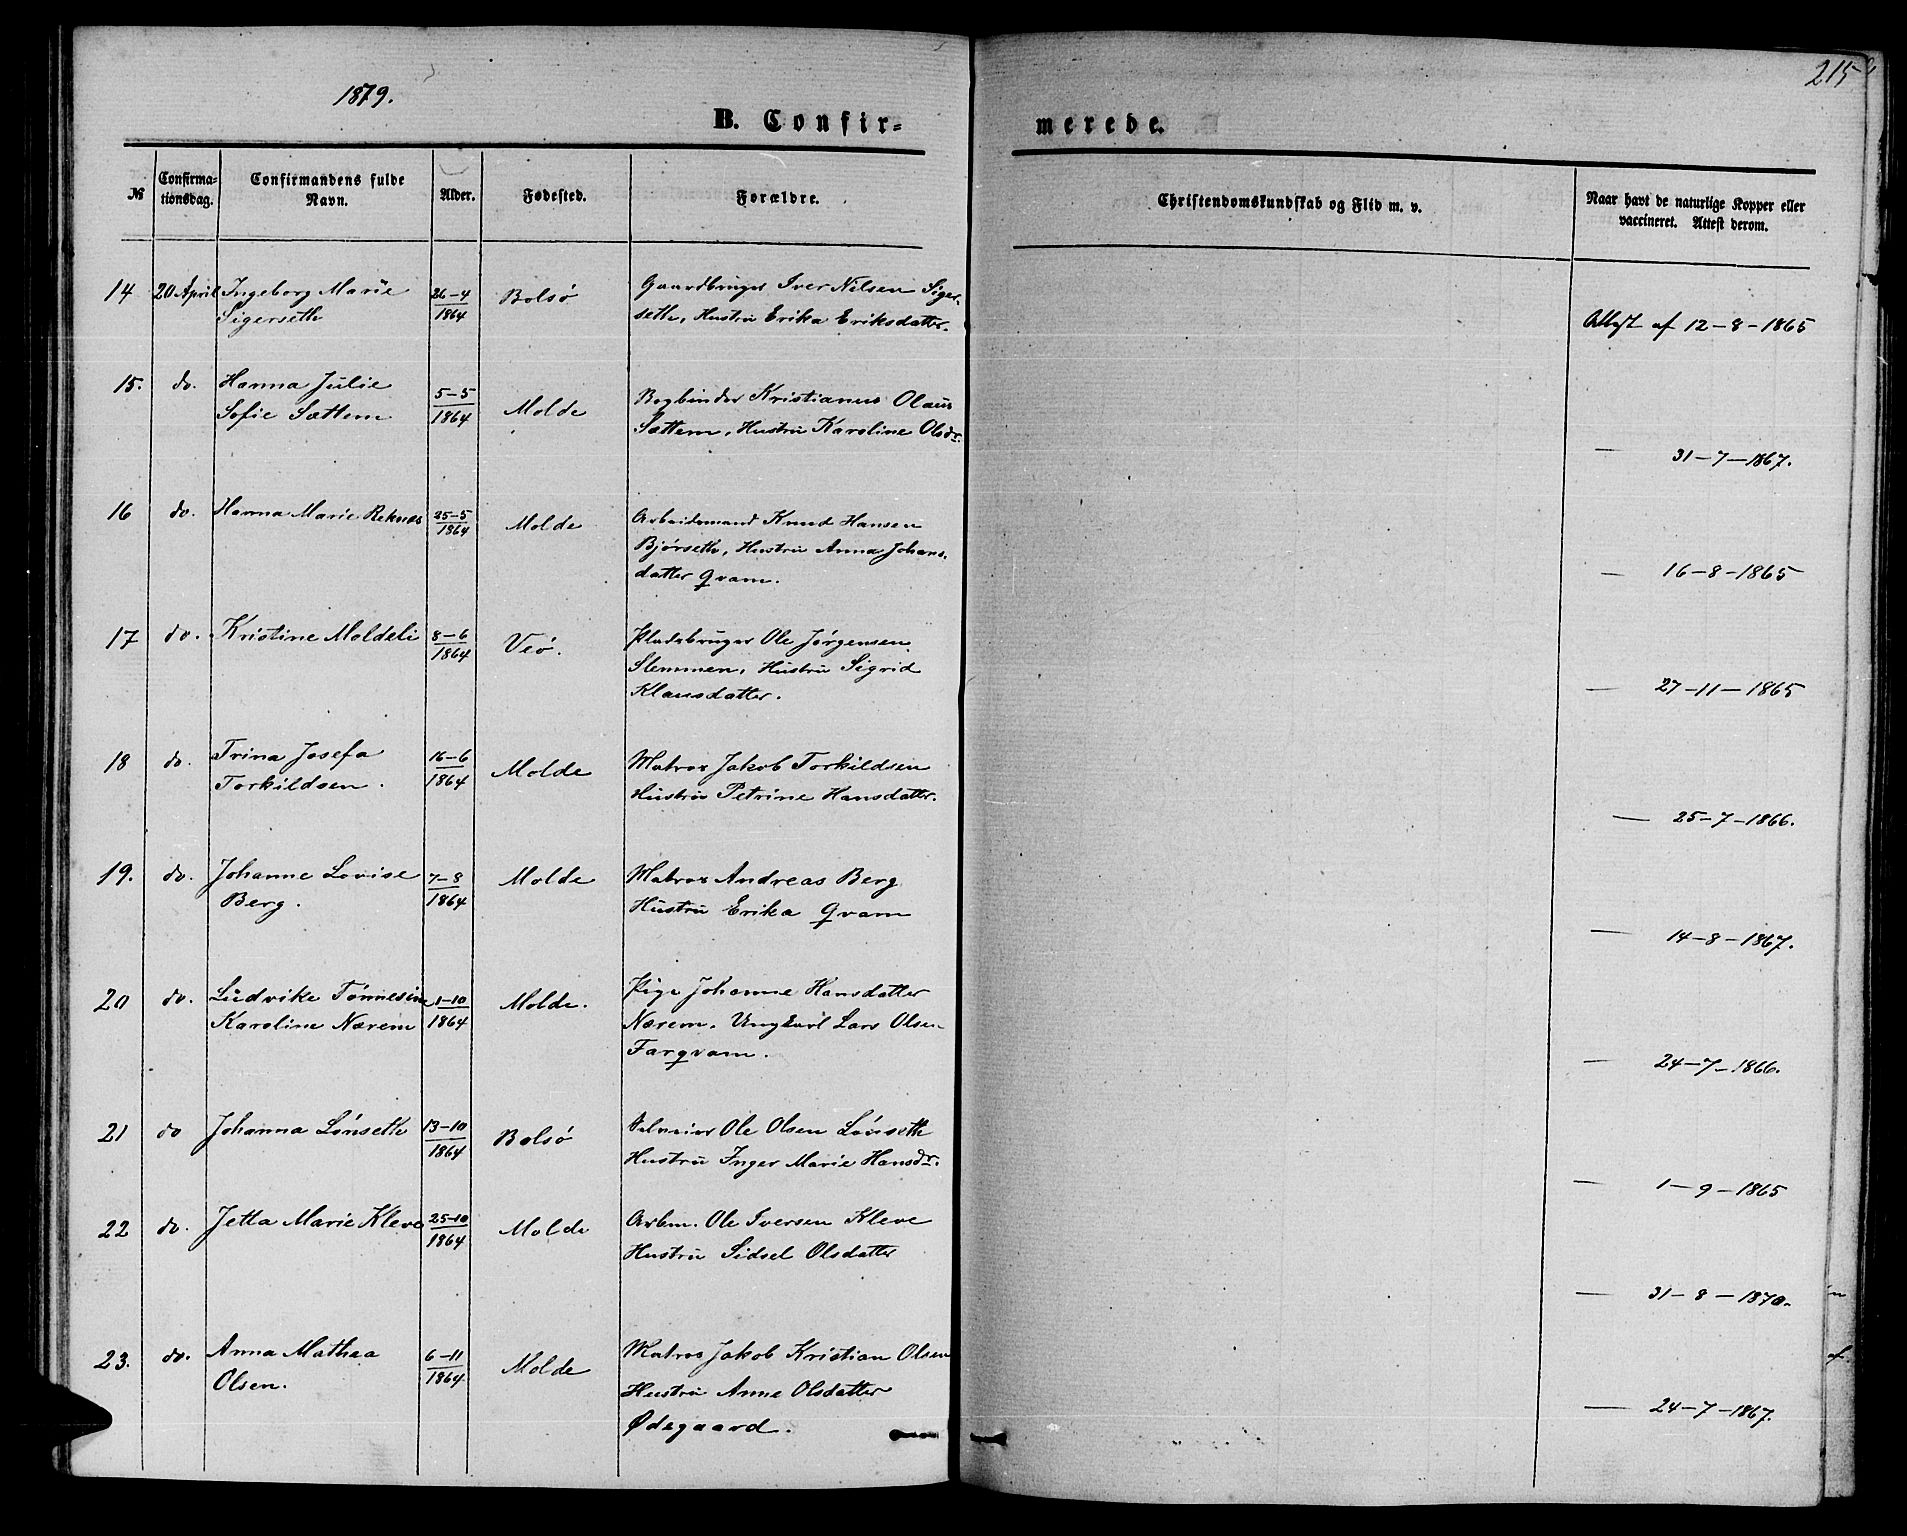 1879.
215
B. Confir-
merede.
№
Confirma-
tionsdag.
Confirmandens fulde
Navn.
Alder.
Fødested.
Forældre.
Christendomskundskab og Flid m. v.
Naar havt de naturlige Kopper eller
vaccineret. Attest derom.
14 20 April Ingeborg Marie
Sigerseth
26-4
1864
Bolsø
Gaardbruger Iver Nilsen Siger-
seth, Hustru Erika Eriksdatter.
Attest af 12-8-1865
15. do. Hanna Julie
Sofie Sættem
5-5
1864
Molde
Bogbinder Kristianus Olaus
Sættem, Hustru Karoline Olsdr.
— 31-7-1867.
16 do. Hanna Marie Reknes
25-5
1864
Molde
Arbeidsmand Knud Hansen
Bjørseth, Hustru Anna Johans-
datter Qvam.
— 16-8-1865
17 do. Kristine Moldeli
8-6
1864
Veø.
Pladsbruger Ole Jørgensen
Slemmen, Hustru Sigrid
Klausdatter.
— 27-11-1865
18 do. Trina Josefa
Torkildsen.
16-6
1864
Molde
Matros Jakob Torkildsen
Hustru Petrine Hansdatter.
— 25-7-1866.
19. do. Johanne Lovise
Berg.
7-8
1864
Molde
Matros Andreas Berg
Hustru Erika Qvam
— 14-8-1867.
20 do. Ludvike Tønnesine
Karoline Nærem
1-10
1864
Molde.
Pige Johanne Hansdatter
Nærem. Ungkarl Lars Olsen
Farqvam.
— 24-7-1866.
21 do Johanna Lønseth
13-10
1864
Bolsø
Selveier Ole Olsen Lønseth
Hustru Inger Marie Hansdr.
— 1-9-1865
22 do. Jetta Marie Kleve
25-10
1864
Molde
Arbm. Ole Iversen Kleve
Hustru Sidsel Olsdatter
— 31-8-1870.
23. do. Anna Mathea
Olsen.
6-11
1864
Molde
Matros Jakob Kristian Olsen
Hustru Anne Olsdatter
Ødegaard.
— 24-7-1867.